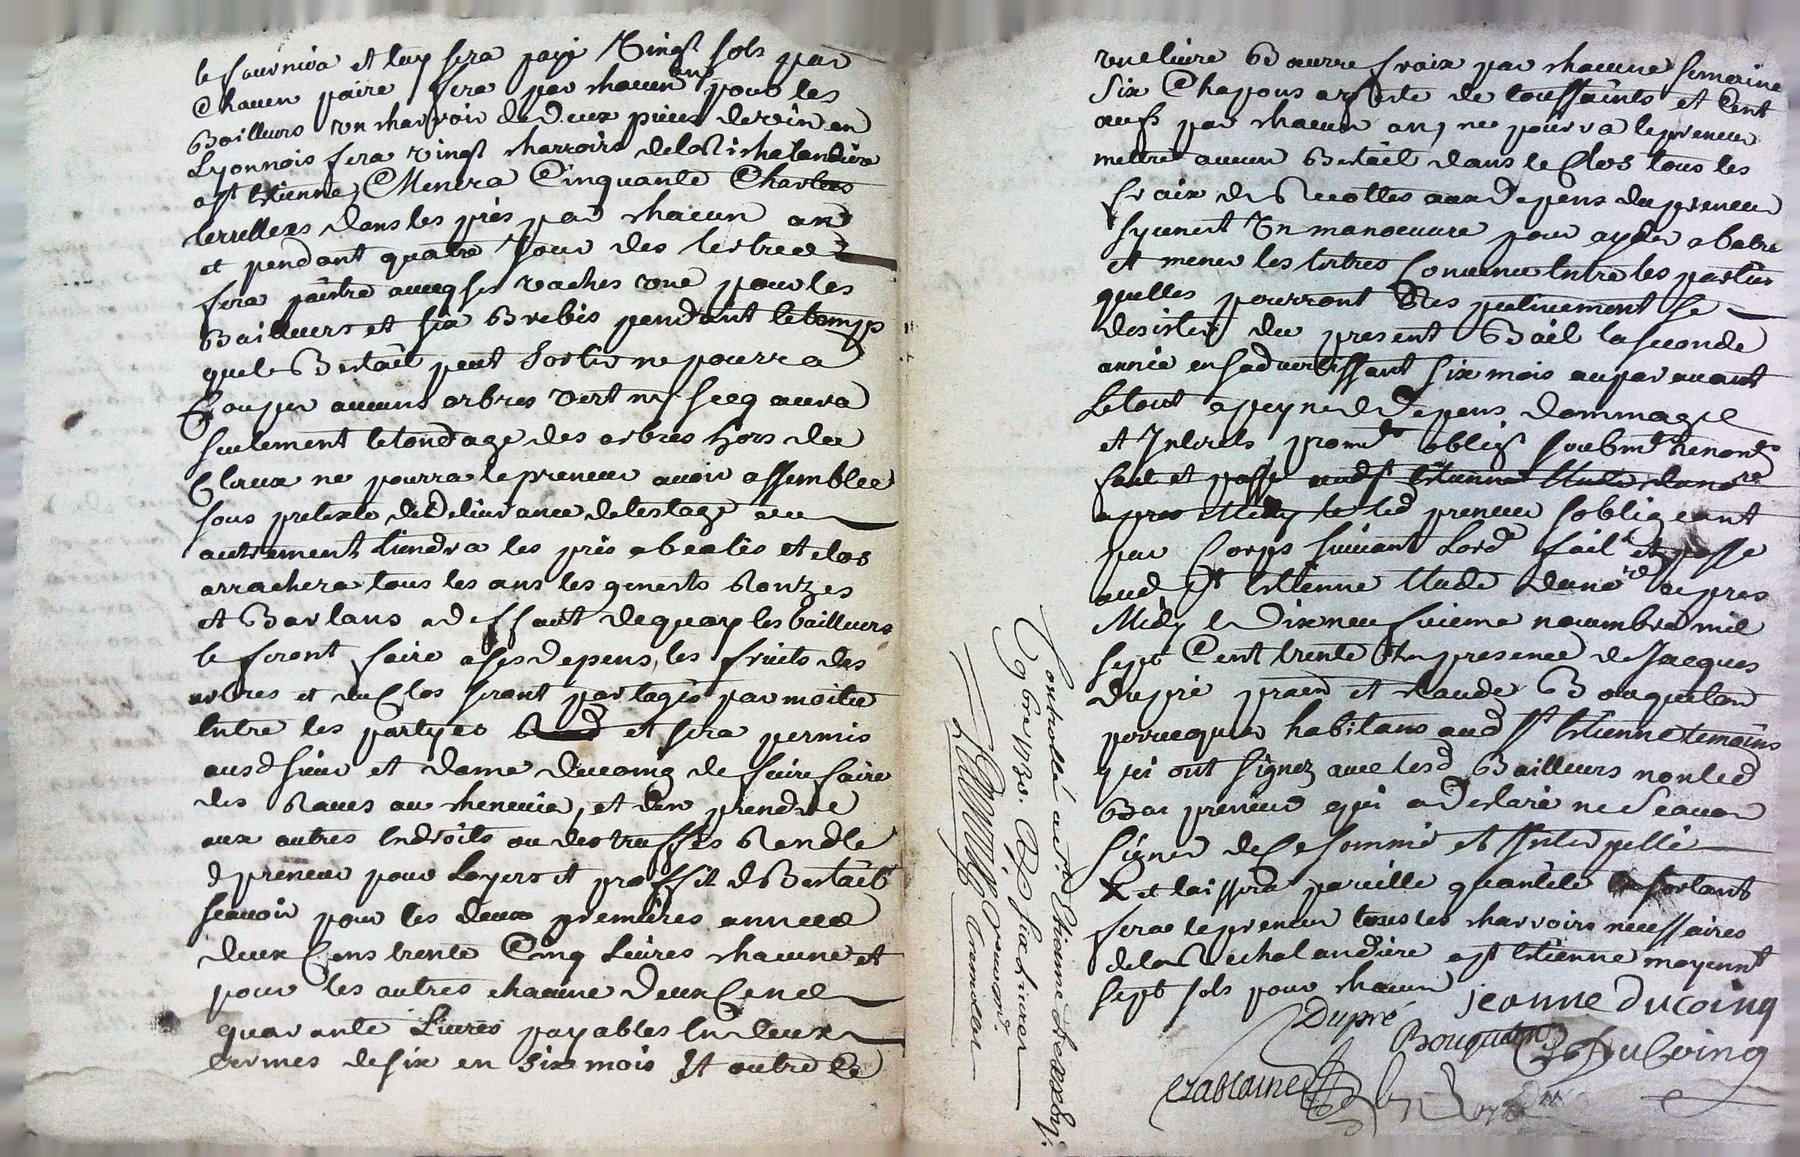 le fournira et luy sera payé vingt sols par
Chacun paire fera par chacun an pour les
Bailleurs un charroir de deux pieces de vin en
Lyonnois fera vingt charroirs de la Richelandiere
a St Etienne, Menera Cinquante Charlees
terrellees dans les prés par chacun an
et pendant quatre Jour des
fera paistre avecq ses vaches une pour les
Bailleurs et six Brebis pendant le temps
que le Bestail peut sortir ne pourra
Couper aucuns arbres vert ny secq aura
seulement le tondage des arbres hors du
Cloux ne pourra le preneur avoir assemblée
sous pretexte de delivrance de lestage ou
autrement tiendra les prés abealés et clos
arrachera tous les ans les genests Ronzes
et Barlans a deffaut de quoy les bailleurs
le feront faire a ses depens, les fruits des
arbres et du Clos seront partagés par moitié
Entre les partyes et sera permis
ausd sieur et dame Ducoing de faire faire
des Raves au chenevier, et den prendre
aux autres Endroits ou des truffes Rendle
d preneur pour Loyers et proffit d Bestail
scavoir pour les deux premieres annees
deux Cens trente Cinq Livres chacune et
pour les autres chacune deux Cens
quarante Livres payables En deux
termes de six en six mois Et outre ce
une livre B eurre fraix par chacune semaine
six Chapons a feste de toussaints et Cent
œufs par chacun an, ne pourra le preneur
mettre aucun Bestail dans le Clos tous les
fraix des Recoltes aux depens du preneur
fournit Un manœuvre pour ayder a batre
et mener les tertres Convenu Entre les parties
quelles pourront Res pectivement se
desister du present Bail la seconde
année en sadvertissant six mois auparavant
Le tout a peyne d depens dommage
et Interets prome oblige soubm renon
fait et passé aud St Etienne Etude du nore
apres Midy le led preneur sobligeant
par Corps suivant Lord fait et passe
aud St Etienne Etude du nore apres
Midy le Dixneuf vieme novembre mil
sept Cent trente En presence de Jacques
Dupré praen et Claude Bouqueton
perruequier habitans aud St Etienne temoins
qui ont signez avec lesd Bailleurs non led
Bar preneur qui a declaré ne scavoir
signer de ce sommé et Interpellé
X et laissera pareille quantité En sortant
fera le preneur tous les charroirs necessaires
de la Rechalandiere a St Etienne moyent
sept sols pour chacun
jeanne ducoing
Dupré
Bouqueton
DuCoing
Controllé a St Etienne
9bre 1730. R six livres